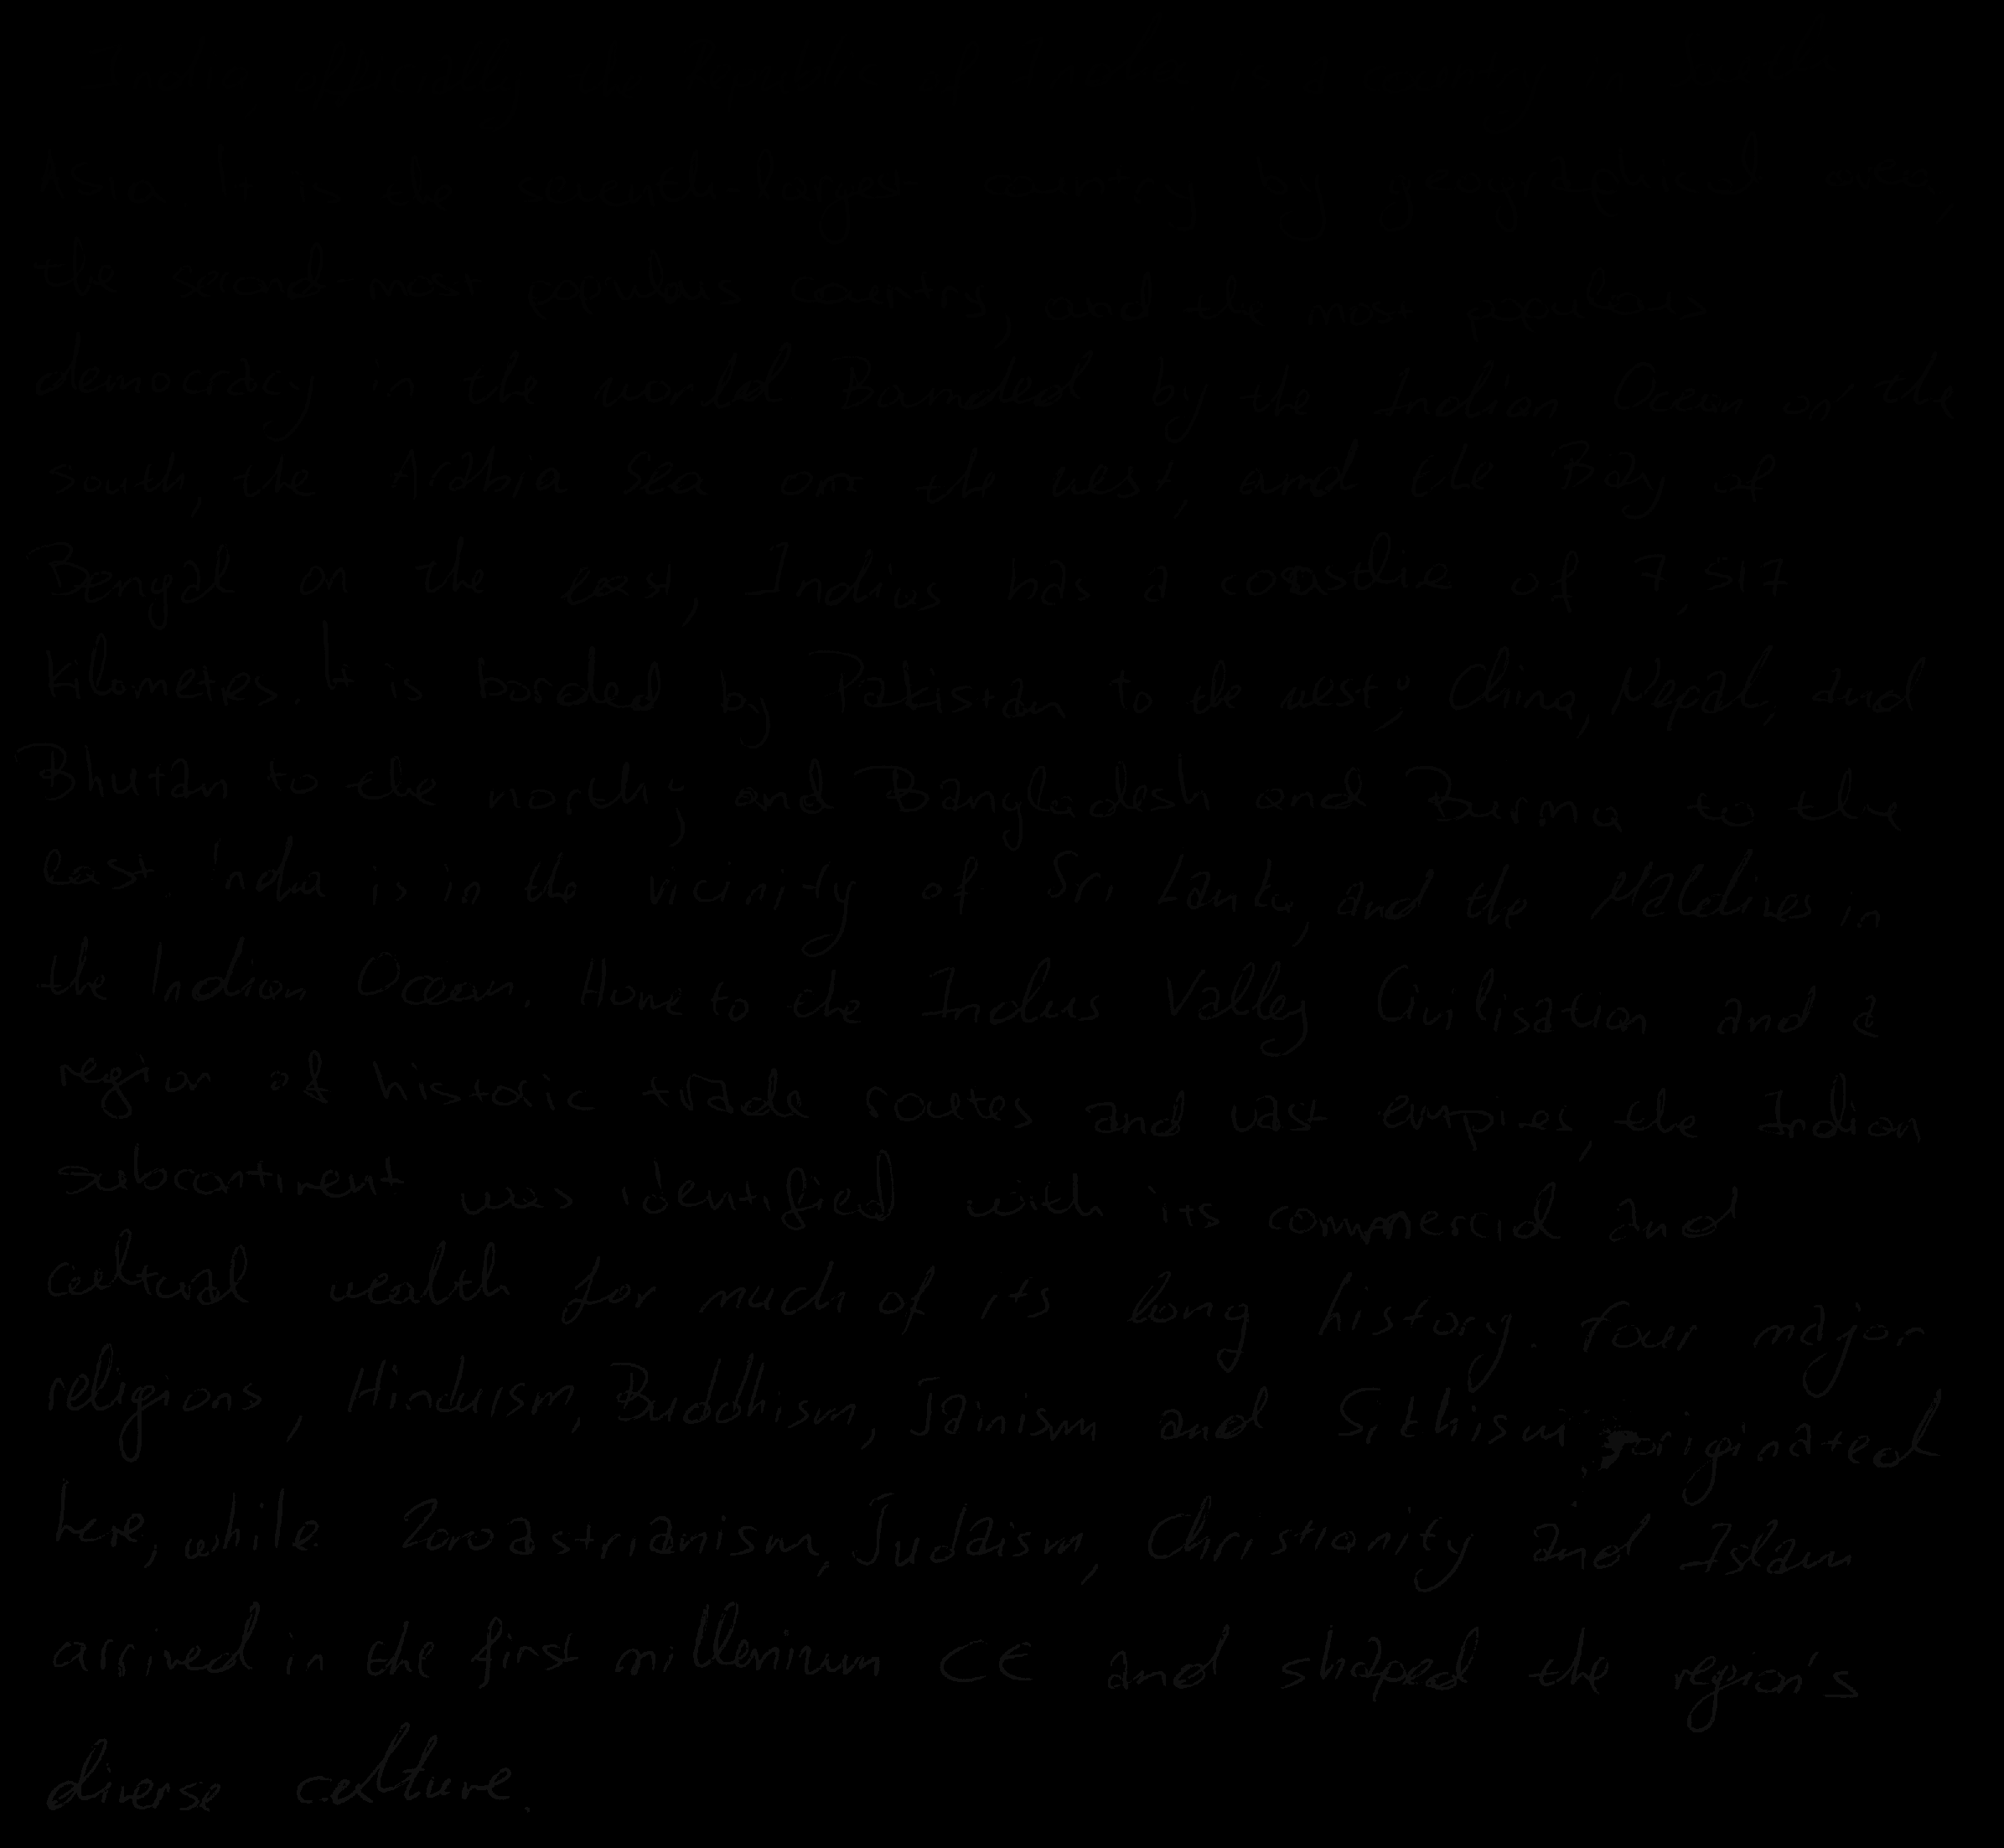 Asia It is the seventh-largest country by geographical area,
the second-most populous country, and the most populous
democracy in the world Bounded by the Indian Ocean on the
south, the Arabia Sea on the west, and the Bay of
Bengal on the east, Indius has a coastlie of 7,517
kilometres. It is borded by Pakistan to the west; China, Nepal, and
Bhutan to the north; and Bangladesh and Burma to the
east. India is in the vicinity of Sri Lanka, and the Maldives in
the Indian Ocean. Home to the Indus Valley Civilisation and a
region of historic trade routes and vast empires, the Indian
subcontinent was identified with its commercial and
cultural wealth for much of its long history. Four major
religions, Hinduism, Buddhism, Jainism and Sithism, originated
here, while Zoroastrianism, Judaism, Christianity and Islam
arrived in the first millenium CE and shaped the region's
diverse culture.